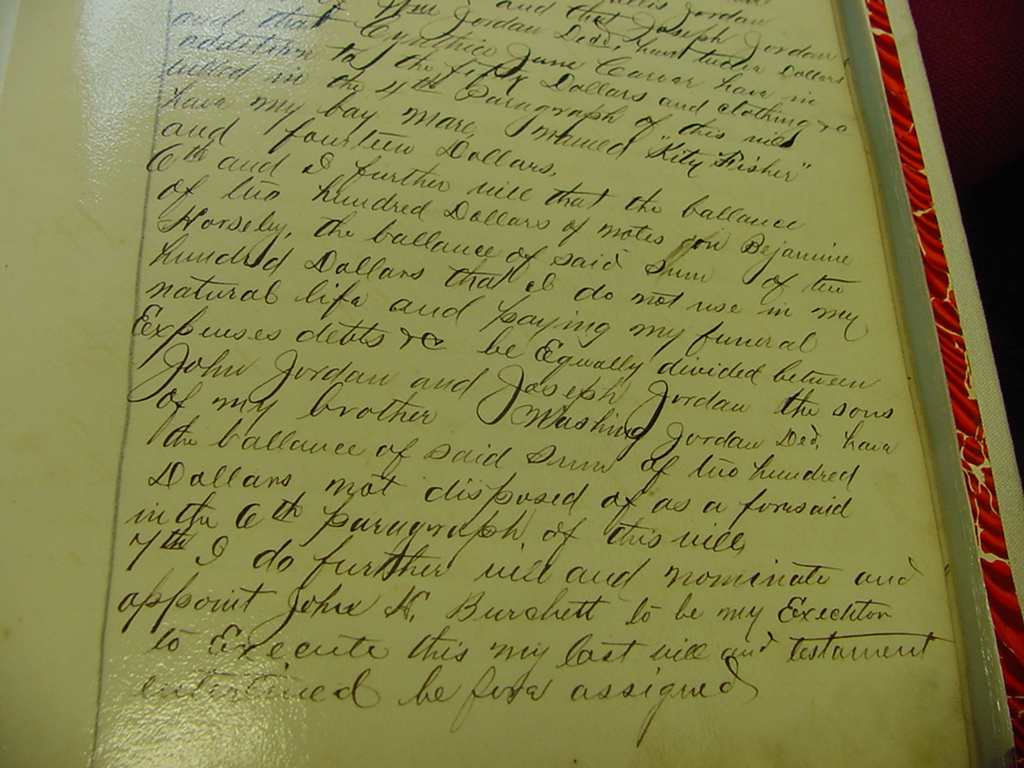 Jordan
of Wm and that Joseph Jordan
and that Jordan Decd, have twelve Dollars
Cynthia Jane Carver have in
addition to the fifty Dollars and clothing &c
willed in the 4th Paragraph of this will
have my bay mare, named "Kity Fisher"
and fourteen Dollars.
6th and I further will that the ballance
of two hundred Dollars of notes on Bejamine
Horseley, the ballance of said Sum of two
hundred Dollars that I do not use in my
natural life and paying my funeral
Expenses debts &c be Equally divided between
John Jordan and Joseph Jordan the sons
of my brother Washing Jordan Decd. have
the ballance of said Sum of two hundred
Dollars not disposed of as a foresaid
in the 6th paragraph of this will
7th I do further will and nominate and
appoint John H. Burchett to be my Execktor
to Execute this my last will and testament
entertined be fore assigned